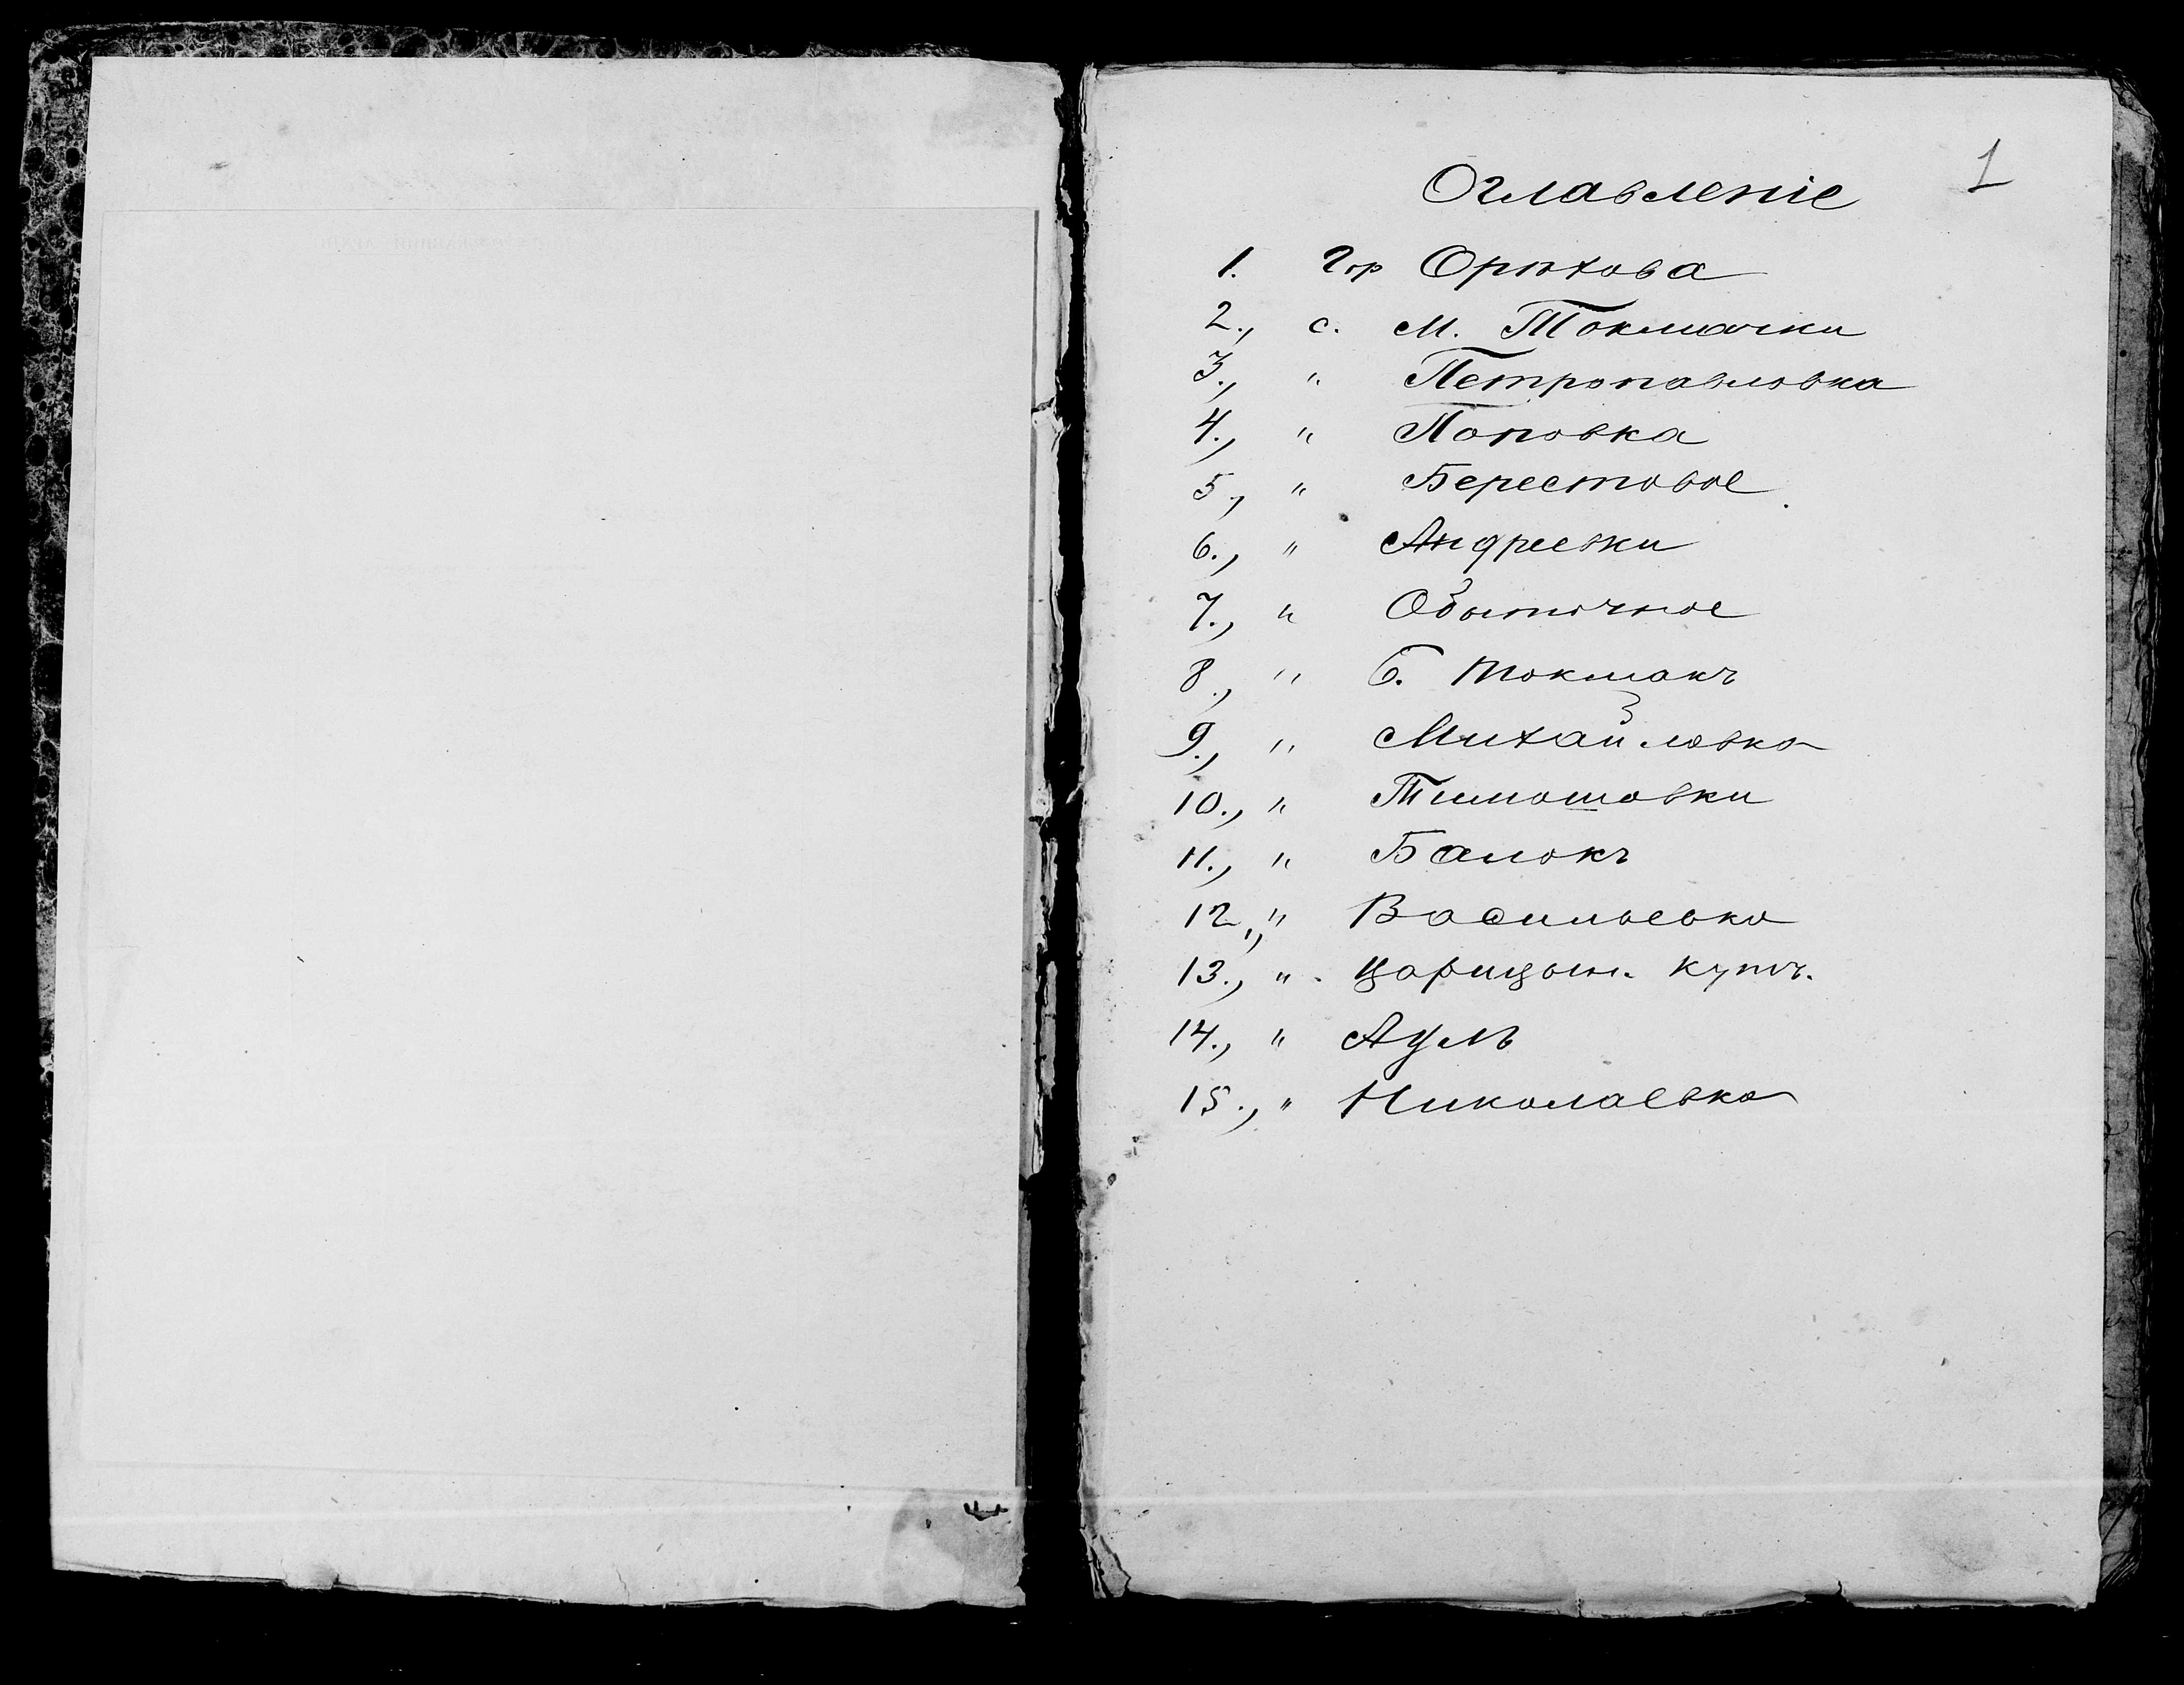 1
Оглавленіе
1. Гор Орѣхова
2., с. М. Токмачки
3., " Петропавловка
4., " Поповка
5., " Берестовое
6., " Андреевки
7., " Обыточное
8., " Б. Токмакъ
9., " Михайловка
10., " Тимошовки
11., " Балокъ
12., " Васильевка
13., " Царицын. Кутъ.
14., " Аулъ
15., " Николаевка